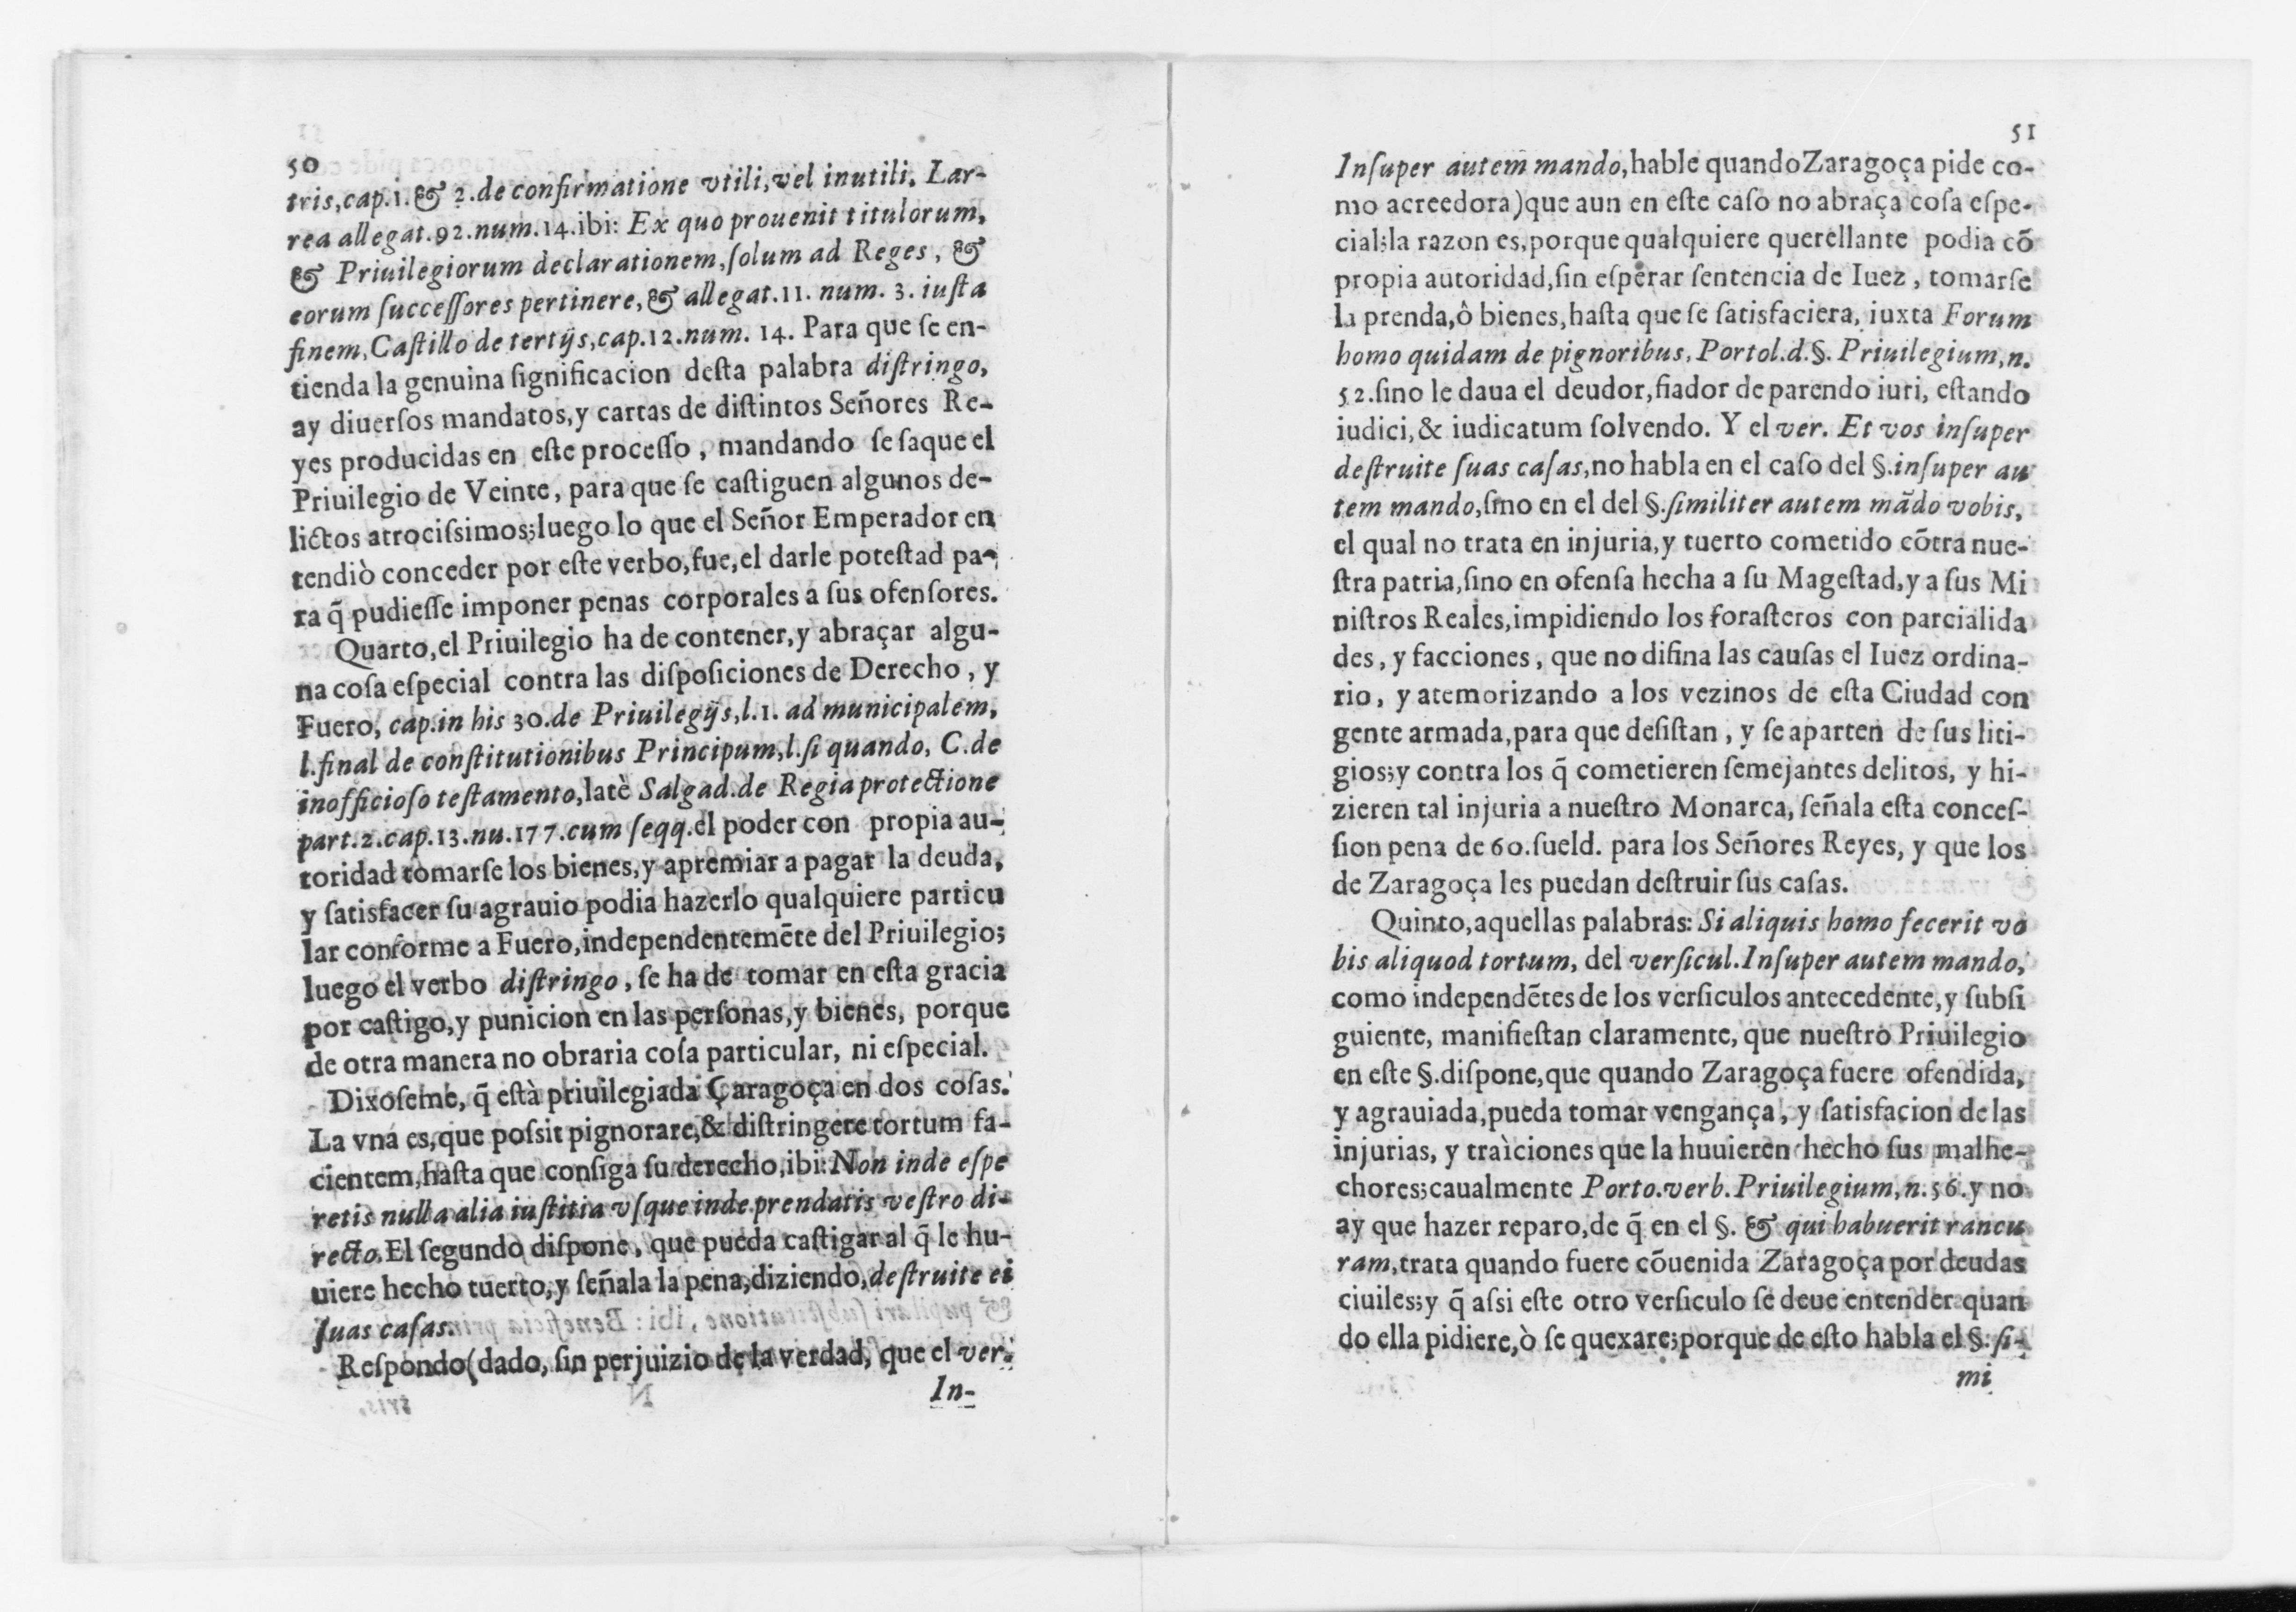 50
tris,cap.1.& 2.de confirmatione vtili,vel inutili. Lar-
rea allegat.92.num.14.ibi: Ex quo prouenit titulorum,
& Priuilegiorum declarationem,ſolum ad Reges, &
eorum ſucceſſores pertinere,& allegat.11. num. 3. iuſta
finem,Caſtillo de tertijs,cap.12.num. 14. Para que ſe en-
tienda la genuina ſignificacion deſta palabra diſtringo,
ay diuerſos mandatos,y cartas de diſtintos Señores Re-
yes producidas en eſte proceſſo, mandando ſe ſaque el
Priuilegio de Veinte, para que ſe caſtiguen algunos de-
lictos atrociſsimos;luego lo que el Señor Emperador en
tendiò conceder por eſte verbo,fue,el darle poteſtad pa-
ra q̃ pudieſſe imponer penas corporales à ſus ofenſores.
Quarto,el Priuilegio ha de contener,y abraçar algu-
na coſa eſpecial contra las diſpoſiciones de Derecho, y
Fuero, cap.in his 30.de Priuilegijs,l.1. ad municipalem,
l.final de conſtitutionibus Principum,l.ſi quando, C.de
inofficioſo teſtamento,latè Salgad.de Regia protectione
part.2.cap.13.nu.177.cum ſeqq.el poder con propia au-
toridad tomarſe los bienes,y apremiar a pagar la deuda,
y ſatisfacer ſu agrauio podia hazerlo qualquiere particu
lar conforme a Fuero,independentemẽte del Priuilegio;
luego el verbo diſtringo, ſe ha de tomar en eſta gracia
por caſtigo,y punicion en las perſonas,y bienes, porque
de otra manera no obraria coſa particular, ni eſpecial.
Dixoſeme, q̃ eſtà priuilegiada Çaragoça en dos coſas.
La vna es,que poſsit pignorare,& diſtringere tortum fa-
cientem,haſta que conſiga ſu derecho,ibi:Non inde eſpe
retis nulla alia iuſtitia vſque inde prendatis veſtro di-
recto.El ſegundo diſpone, que pueda caſtigar al q̃ le hu-
uiere hecho tuerto,y ſeñala la pena,diziendo,deſtruite ei
ſuas caſas.
Reſpondo(dado, ſin perjuizio de la verdad, que el ver.
In-
51
Inſuper autem mando,hable quando Zaragoça pide co-
mo acreedora)que aun en eſte caſo no abraça coſa eſpe-
cial;la razon es,porque qualquiere querellante podia cõ
propia autoridad,ſin eſperar ſentencia de Iuez, tomarſe
la prenda,ò bienes,haſta que ſe ſatisfaciera, iuxta Forum
homo quidam de pignoribus, Portol.d.§. Priuilegium,n.
52.ſino le daua el deudor,fiador de parendo iuri, eſtando
iudici,& iudicatum ſolvendo. Y el ver. Et vos inſuper
deſtruite ſuas caſas,no habla en el caſo del §.inſuper au
tem mando,ſino en el del §.ſimiliter autem mãdo vobis,
el qual no trata en injuria,y tuerto cometido cõtra nue-
ſtra patria,ſino en ofenſa hecha a ſu Mageſtad,y a ſus Mi
niſtros Reales,impidiendo los foraſteros con parcialida
des, y facciones, que no difina las cauſas el Iuez ordina-
rio, y atemorizando a los vezinos de eſta Ciudad con
gente armada,para que deſiſtan, y ſe aparten de ſus liti-
gios;y contra los q̃ cometieren ſemejantes delitos, y hi-
zieren tal injuria a nueſtro Monarca, ſeñala eſta conceſ-
ſion pena de 60.ſueld. para los Señores Reyes, y que los
de Zaragoça les puedan deſtruir ſus caſas.
Quinto,aquellas palabras: Si aliquis homo fecerit vo
bis aliquod tortum, del verſicul.Inſuper autem mando,
como independẽtes de los verſiculos antecedente,y ſubſi
guiente, manifieſtan claramente, que nueſtro Priuilegio
en eſte §.diſpone,que quando Zaragoça fuere ofendida,
y agrauiada,pueda tomar vengança, y ſatisfacion de las
injurias, y traìciones que la huuieren hecho ſus malhe-
chores;caualmente Porto.verb.Priuilegium,n.56.y no
ay que hazer reparo,de q̃ en el §. & qui habuerit rancu
ram,trata quando fuere cõuenida Zaragoça por deudas
ciuiles;y q̃ aſsi eſte otro verſiculo ſe deue entender quan
do ella pidiere,ò ſe quexare;porque de eſto habla el §.ſi-
mi